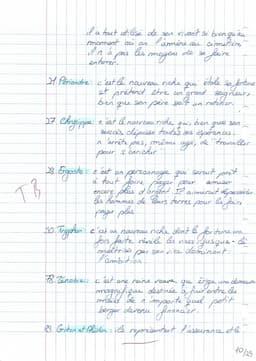 il a tout utilisé de son vivant si bien qu'au
moment où on l'amène au cimetière
il n'a pas les moyens de se faire
enterrer.
Périandre : c'est le nouveau riche qui étale sa fortune
et prétend être un grand seigneur
bien que son père soit un
27 Chrysippe : c'est le nouveau riche qui, bien que son
succès dépasse toutes ses espérances
n'arrête pas, même âgé, de travailler
pour s'enrichir
28 Ergaste : c'est un personnage qui serait prêt
à tout faire payer pour amasser
encore plus d'argent. Il aimerait
les hommes de leurs terres pour le faire
payer plus
TB
c'est un nouveau riche dont la fortune
fort faite révèle les vices jusque-là
par son vice dominant
l'ambition
78 Zénobie : c'est une reine veuve qui érige une demeure
magnifique destinée à finir entre les
mains de n'importe quel petit
berger devenu financier.
83 : ils représentent l'assurance et la
10/25